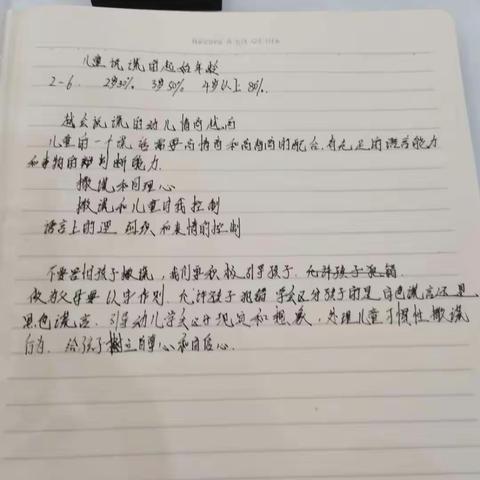 Record A bit Of life
儿童说谎的起始年龄
2-6. 2岁30% 3岁50% 4岁以上80%.
越会说谎的幼儿情商越高
儿童的一个谎话需要高情商和高智商的配合.有充足的语言能力
和事物的判断能力.
撒谎和同理心
撒谎和儿童自我控制
语言上的逻 和表情的控制
不要害怕孩子撒谎,我们要积极引导孩子.允许孩子犯错.
做为父母要以身作则.允许孩子犯错 学会区分孩子的是白色谎言还是
黑色谎言.引导幼儿学会区分现实和想象,处理儿童习惯性撒谎
行为.给孩子树立自尊心和自信心.